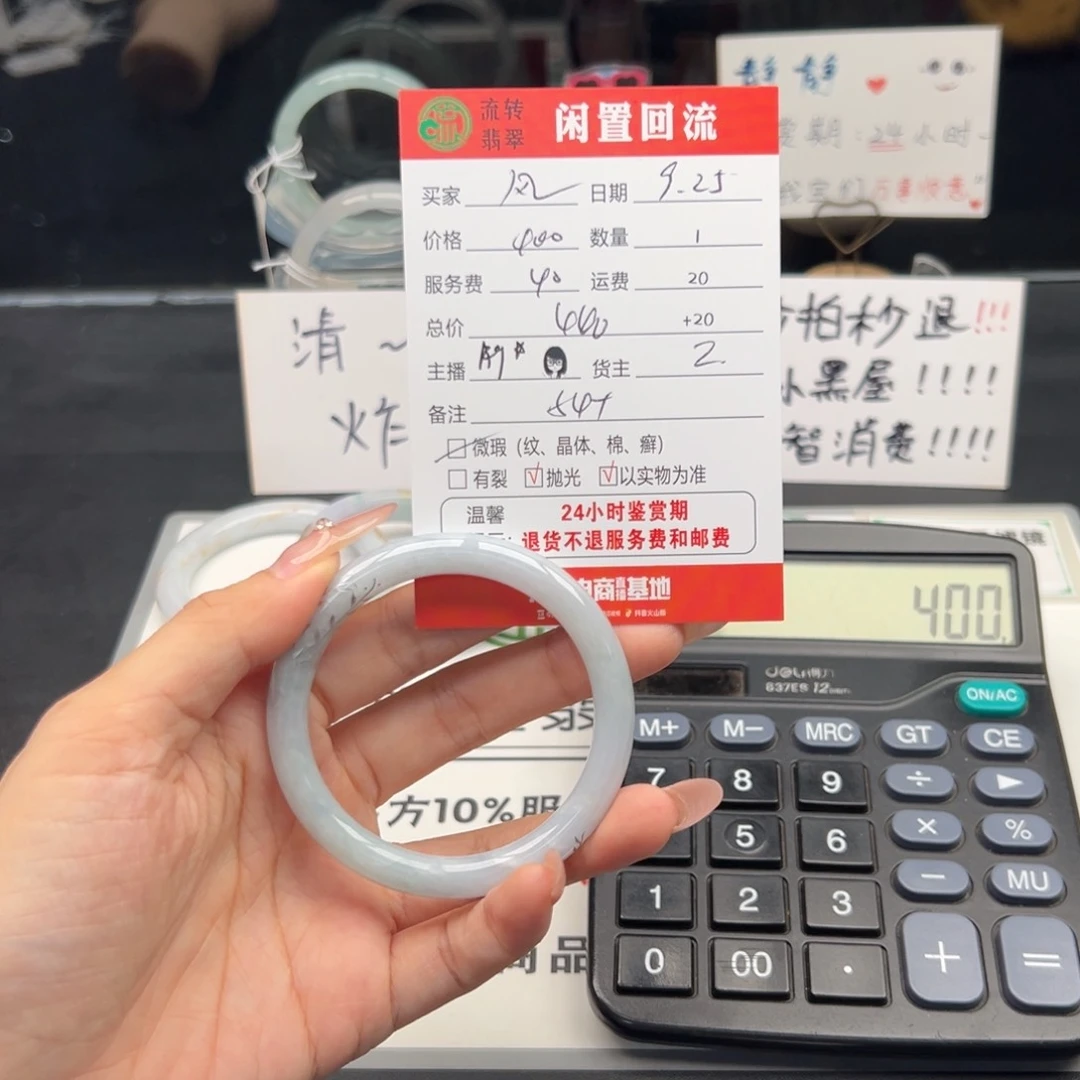 流转
翡翠
闲置回流
买家 风 日期 9.25
价格 400 数量 1
服务费 40 运费 20
总价 440 +20
主播 货主 2.
备注
微瑕 (纹、晶体、棉、癣)
有裂 √抛光 √以实物为准
温馨
24小时鉴赏期
退货不退服务费和邮费
电商直播基地
静静
赏期:24小时
万事如意
清~
炸
拍秒退!!!
小黑屋!!!!
智消费!!!!
400.
deli 得力
837ES 12
ON/AC
M+ M- MRC GT CE
7 8 9 ÷ ▶
5 6 × %
1 2 3 − MU
0 00 . + =
方10%服
商品